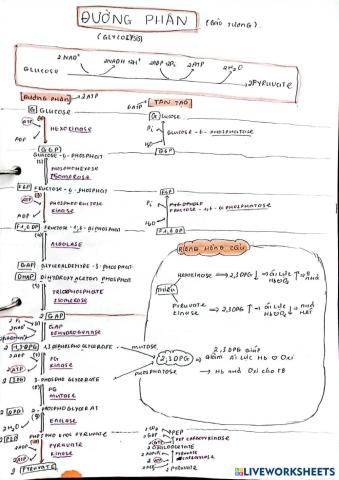 ĐƯỜNG PHÂN (BÀO TƯƠNG).
(GLYCOLYSIS)
2NAD⁺ 2NADH+H⁺ 2ADP+2Pi 2ATP 2H₂O
GLUCOSE 2PYRUVATE
ĐƯỜNG PHÂN 2ATP
6ATP TÂN TẠO
G GLUCOSE
GLUCOSE
ATP
HEXOKINASE
ADP
Pi
GLUCOSE-6-PHOSPHATASE
H₂O
G6P
G6P
GLUCOSE-6-PHOSPHAT
PHOSPHOHEXOSE
ISOMERASE
F6P FRUCTOSE-6-PHOSPHAT
F6P
ATP
PHOSPHOFRUCTOKINASE
ADP
Pi
FRUCTOSE-1,6-DIPHOSPHATASE
H₂O
F1,6DP FRUCTOSE-1,6-DIPHOSPHAT
F1,6DP
ALDOLASE
GAP GLYCERALDEHYDE-3-PHOSPHAT
DHAP DIHYDROXYACETON PHOSPHAT
TRIOSEPHOSPHATE
ISOMERASE
2 GAP
2 Pi
2NAD⁺
GAP
DEHYDROGENASE
Ở HỒNG CẦU
HEXOKINASE ⇒ 2,3DPG ↓ ⇒ ÁI LỰC ↑ ⇒ NHẢ
HbO₂
THIẾU
PYRUVATE
KINASE ⇒ 2,3DPG ↑ ⇒ ÁI LỰC ↓ ⇒ NHẢ
HbO₂
2 1,3DPG 1,3DIPHOSPHOGLYCERATE MUTASE
2,3DPG
2,3DPG GIÚP
GIẢM ÁI LỰC Hb VÀ OXI
→ Hb NHẢ OXI CHO MÔ
2ADP
2ATP
PG
KINASE
PHOSPHATASE
2 3PG 3-PHOSPHOGLYCERATE
PG
MUTASE
2 2PG 2-PHOSPHOGLYCERAT
ENOLASE
2H₂O
2 PEP PHOSPHOENOL PYRUVATE
2ADP
2ATP
PYRUVATE
KINASE
2 PYRUVATE
2CO₂ 2PEP
2GDP
2GTP
PEP CARBOXYKINASE
2 OXALOACETATE
2 PYRUVATE
LIVEWORKSHEETS